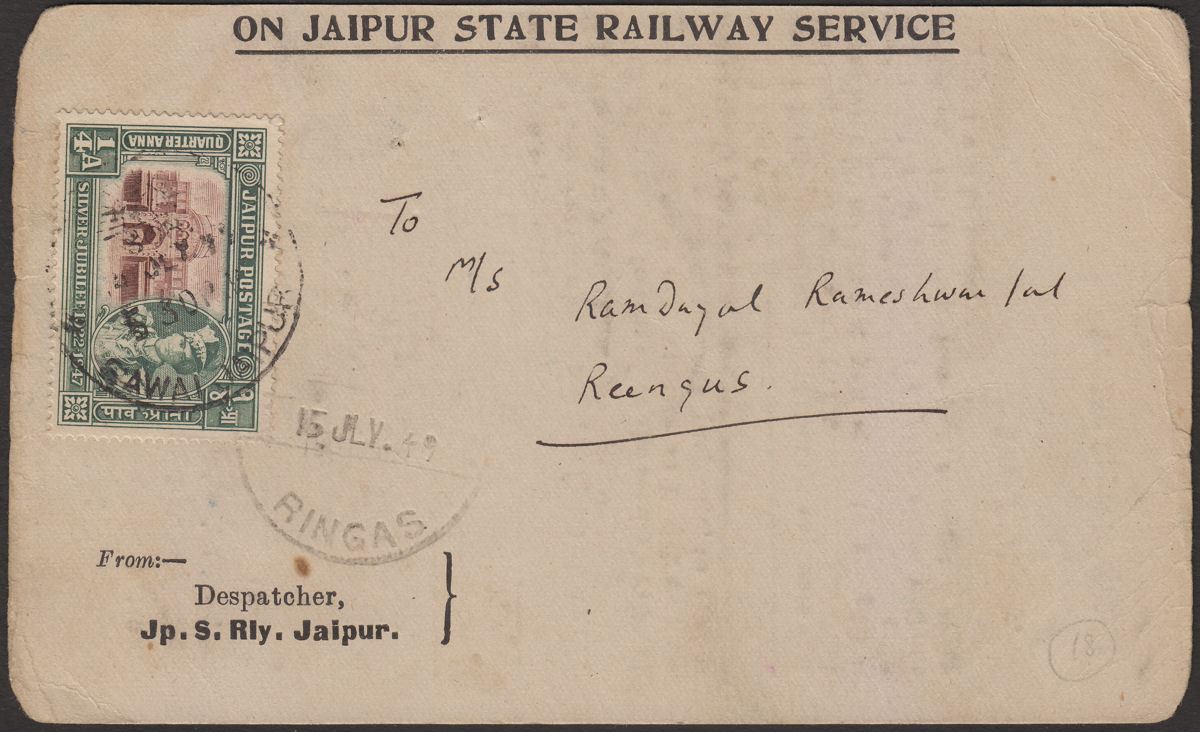 ON JAIPUR STATE RAILWAY SERVICE
1/4 A
QUARTER ANNA
JAIPUR POSTAGE
SILVER JUBILEE 1922-1947
पाव आना
SAWAI JAIPUR
To
M/s
RamDayal Rameshwar lal
Reengus.
15 JLY. 49
RINGAS
From:—
Despatcher,
Jp. S. Rly. Jaipur.
18